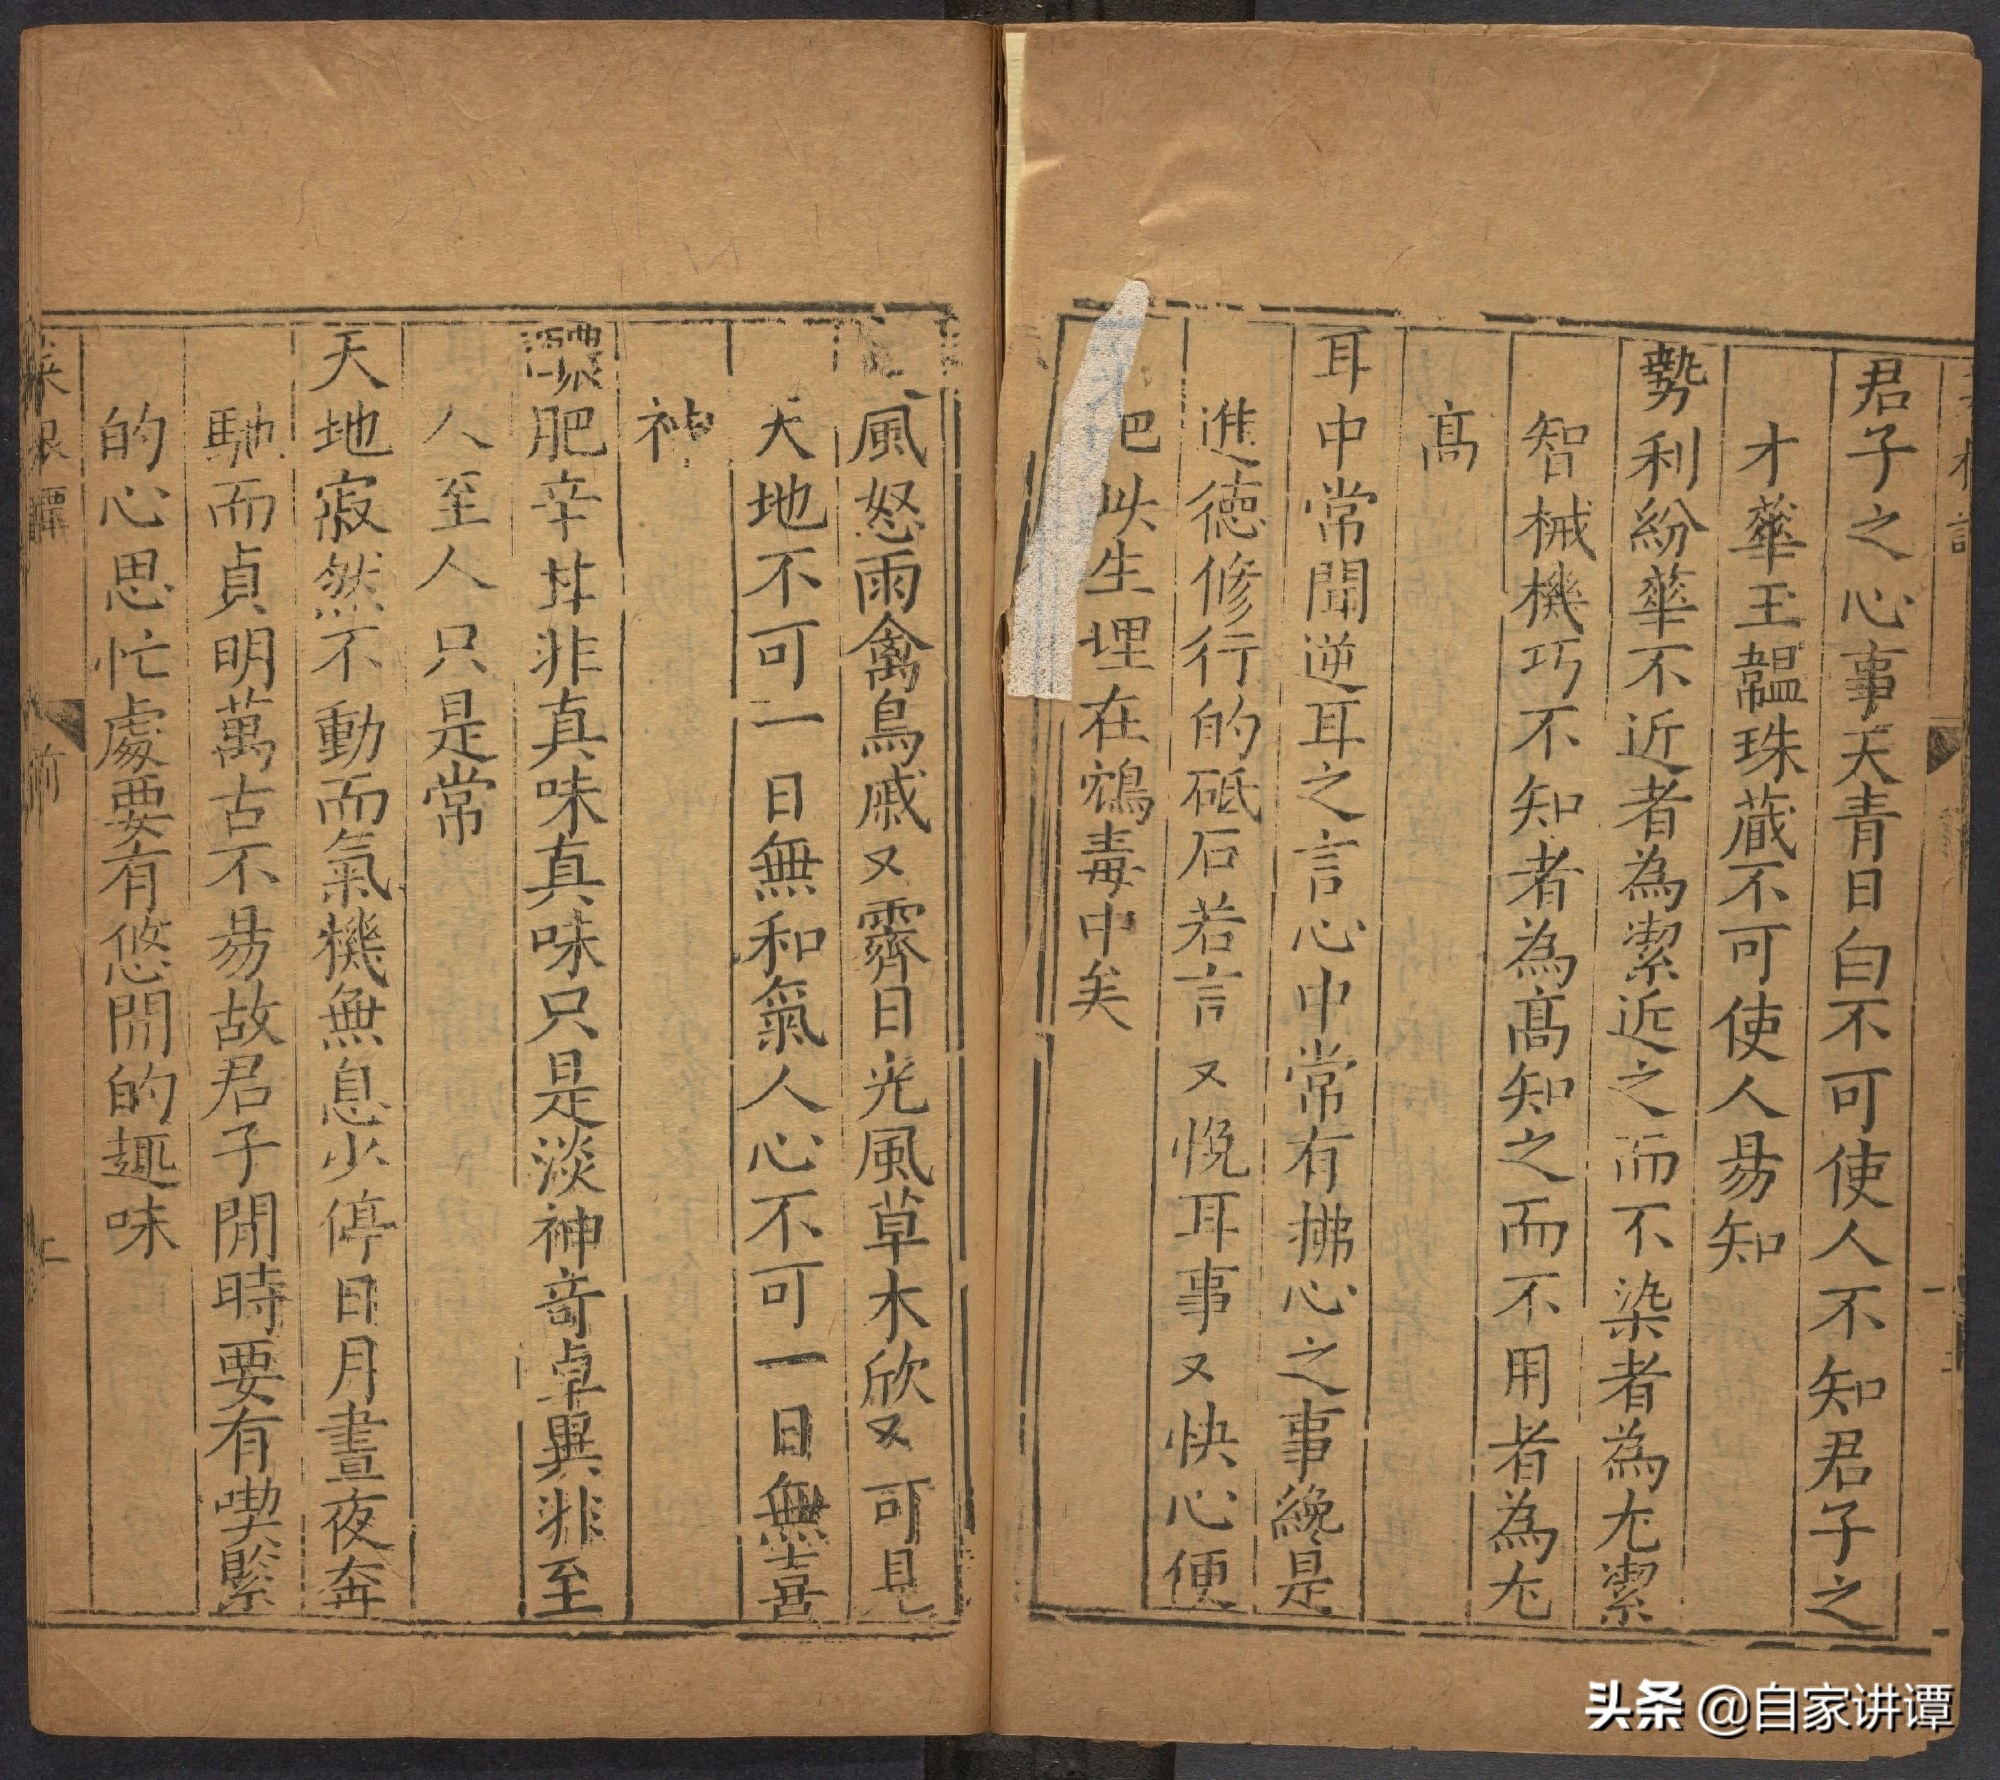 君子之心事天青日白不可使人不知君子之
才華玉韞珠蔵不可使人易知
勢利紛華不近者為潔近之而不染者為尤潔
智械機巧不知者為髙知之而不用者為尤
髙
耳中常聞逆耳之言心中常有拂心之事纔是
進德修行的砥石若言又悅耳事又快心便
把此生埋在鴆毒中矣
風怒雨禽鳥戚又霽日光風草木欣又可見
天地不可一日無和氣人心不可一日無喜
神
醲肥辛甘非真味真味只是淡神竒卓異非至
人至人只是常
天地寂然不動而氣機無息少停日月晝夜奔
馳而貞明萬古不易故君子閒時要有喫緊
的心思忙處要有悠閒的趣味
菜根譚
前
頭条 @自家讲谭